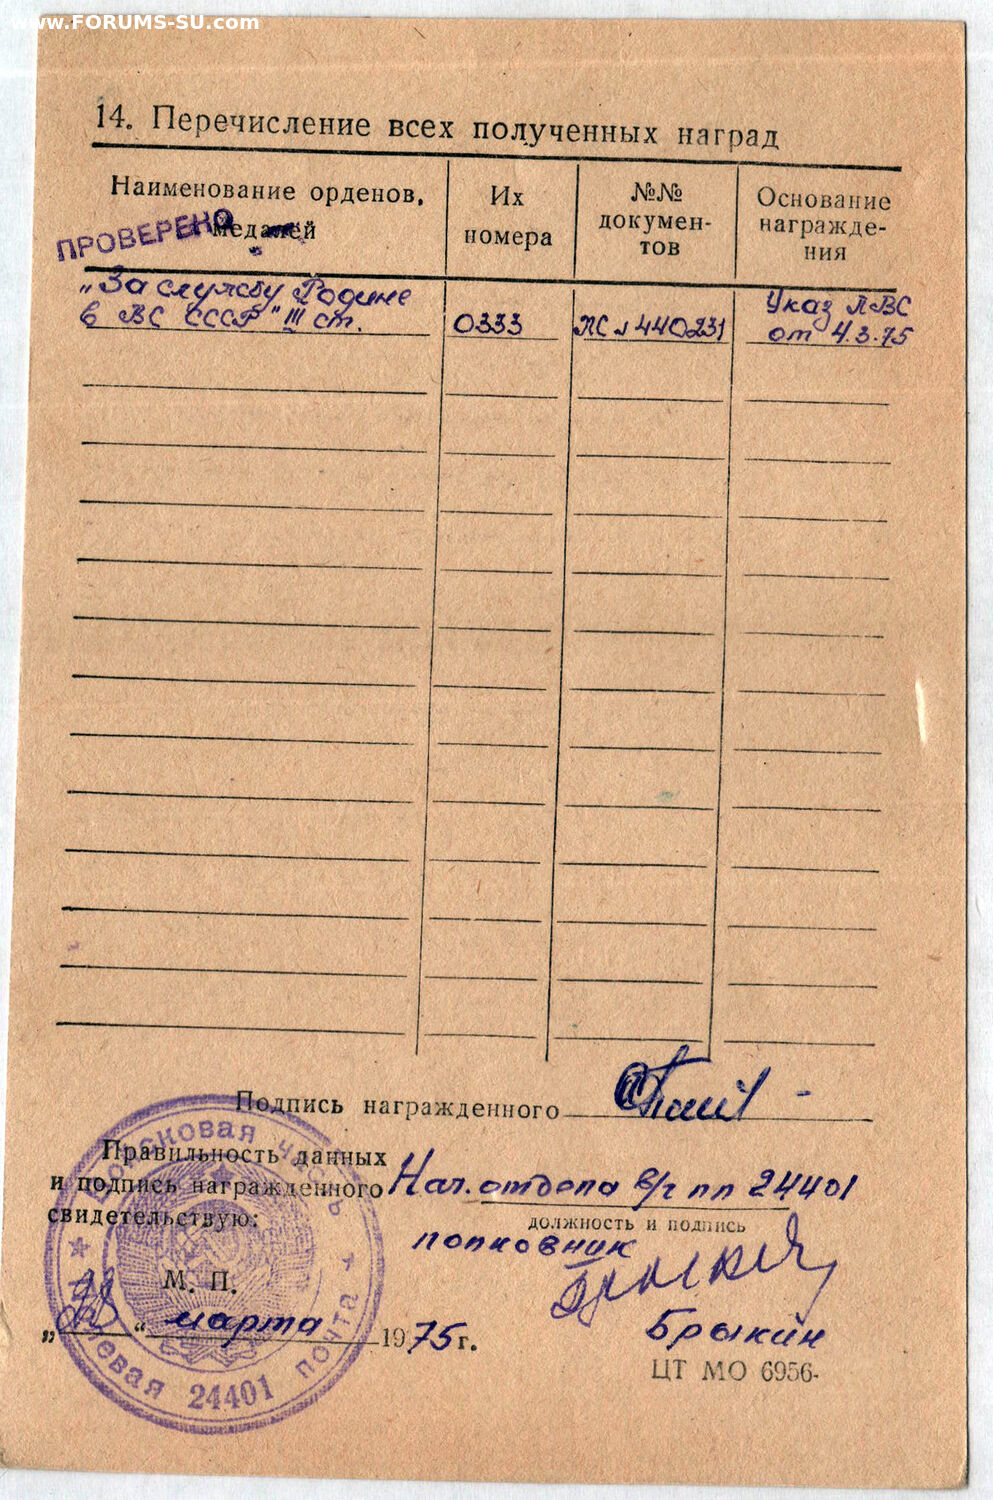 www.FORUMS-SU.com
14. Перечисление всех полученных наград
Наименование орденов, медалей
Их номера
№№ докумен-
тов
Основание
награжде-
ния
ПРОВЕРЕНО
„За службу Родине
в ВС СССР" III ст.
0333
ПС № 440231
Указ ПВС
от 4.3.75
Подпись награжденного
Правильность данных
и подпись награжденного
свидетельствую:
Нач. отдела в/ч пп 24401
должность и подпись
полковник
Брыкин
М. П.
„28" марта 1975 г.
ЦТ МО 6956-
Войсковая часть
полевая почта
24401